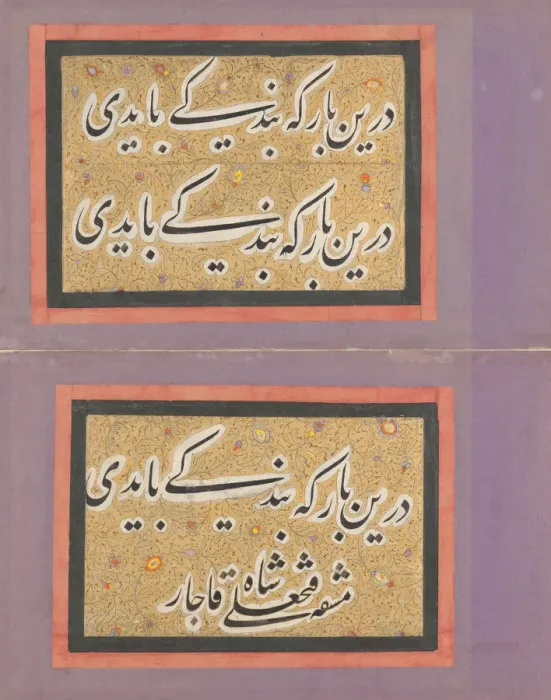 درین بارکه بندکی بایدی
درین بارکه بندکی بایدی
درین بارکه بندکی بایدی
مشقه فتحعلی شاه قاجار